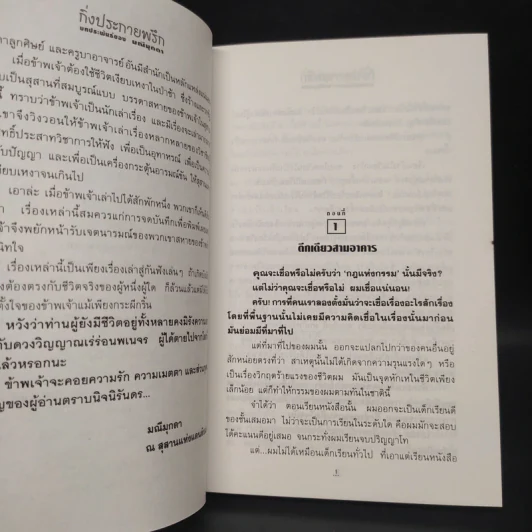 กิ่งประกายพรึก
บทประพันธ์ของ มณีมุกดา
าลูกศิษย์ และครูบาอาจารย์อันมีสำนักเป็นหลักแหล่ง
เมื่อข้าพเจ้าต้องใช้ชีวิตเงียบเหงาในป่าช้า ซึ่งร้าง
บเป็นสุสานที่สมบูรณ์แบบ บรรดาสหายของข้าพเจ้า
นี้ ทราบว่าข้าพเจ้าเป็นนักเล่าเรื่อง และมีเรื่องจะเล่า
เขาจึงวิงวอนให้ข้าพเจ้าเล่าเรื่องหลากหลาย
ทธิ์ประสาทวิชาการให้ฟัง เพื่อเป็นอุทาหรณ์ เพื่อเป็น
ับปัญญา และเพื่อเป็นเครื่องกระตุ้นอารมณ์ขัน ให้
ียบเหงาจนเกินไป
เอาล่ะ เมื่อข้าพเจ้าเล่าไปได้สักพักหนึ่ง พวกเขา
า เรื่องเหล่านี้สมควรแก่การจดบันทึกเพื่อ
จ้าจึงพยักหน้ารับเจตนารมณ์ของพวกเขา
นิทใจ
เรื่องเหล่านี้เป็นเพียงเรื่องเล่าสู่กันฟังเล่นๆ ถ้า
ต้องตรงกับชีวิตจริงของผู้หนึ่งผู้ใด ก็ล้วนแล้ว
ตั้งใจของข้าพเจ้าแม้เพียงกระผีกริ้น
หวังว่าท่านผู้ยังมีชีวิตอยู่ทั้งหลายคงมิรังควาน
กับดวงวิญญาณเร่ร่อนพเนจร ผู้ได้ตายไปจาก
แล้วหรอกนะ
ข้าพเจ้าจะคอยความรัก ความเมตตา และ
ญของผู้อ่านตราบนิจนิรันดร...
มณีมุกดา
ณ สุสานแห่ง
ตอนที่
1
ตึกเดียวสามอาคาร
คุณจะเชื่อหรือไม่ครับว่า ‘กฎแห่งกรรม’ นั้นมีจริง?
แต่ไม่ว่าคุณจะเชื่อหรือไม่ ผมเชื่อแน่นอน!
ครับ การที่คนเราลองตั้งมั่นว่าจะเชื่อเรื่องอะไรสักเรื่อง
โดยที่พื้นฐานนั้นไม่เคยมีความคิดเชื่อในเรื่องนั้นมาก่อน
มันย่อมมีที่มาที่ไป
แต่ที่มาที่ไปของผมนั้น ออกจะแปลกไปกว่าของคนอื่นอยู่
สักหน่อยตรงที่ว่า สาเหตุนั้นไม่ได้เกิดจากความรุนแรงใดๆ หรือ
เป็นเรื่องวิกฤตร้ายแรงของชีวิตผม มันเป็นจุดหักเหในชีวิตเพียง
เล็กน้อย แต่ก็ทำให้กรรมของผมตามทันในชาตินี้
จำได้ว่า ตอนเรียนหนังสือนั้น ผมออกจะเป็นเด็กเรียนดี
ของชั้นเสมอมา ไม่ว่าจะเป็นการเรียนในระดับใด คือผมมักจะสอบ
ได้คะแนนดีอยู่เสมอ จนกระทั่งผมเรียนจบปริญญาโท
แต่...ผมไม่ได้เหมือนเด็กเรียนทั่วไป ที่เอาแต่เรียนหนังสือ